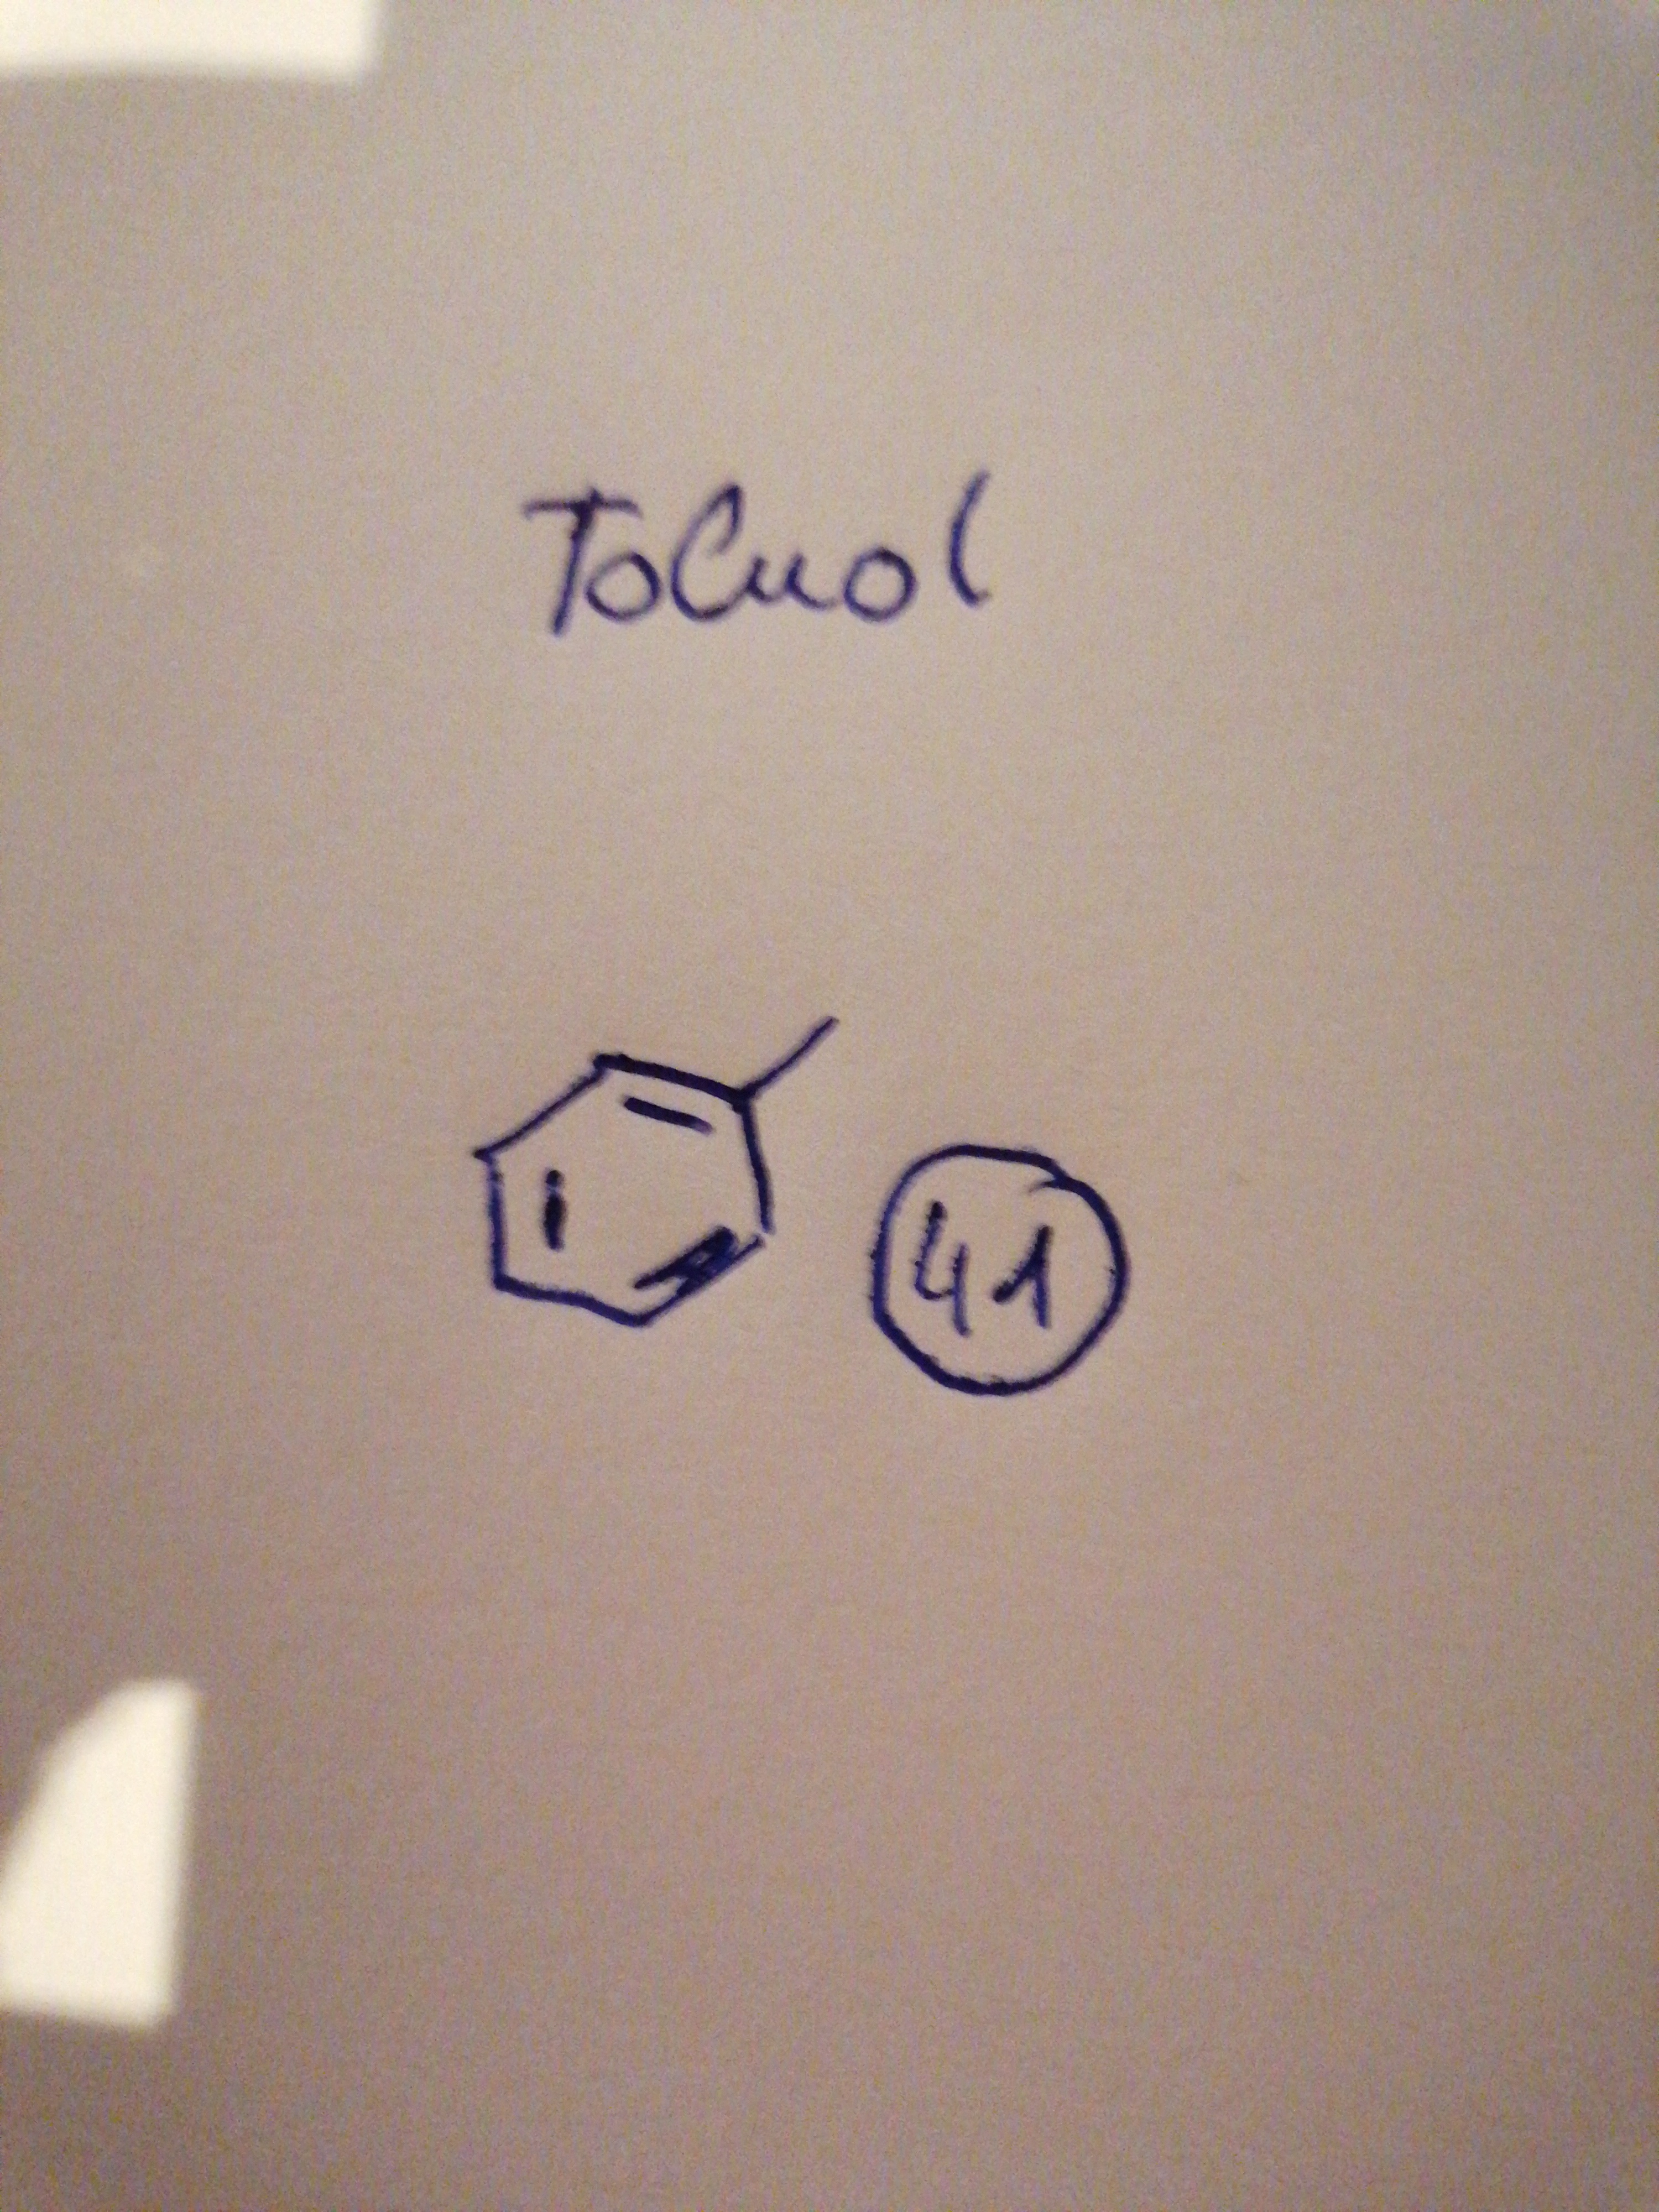 Toluol
41